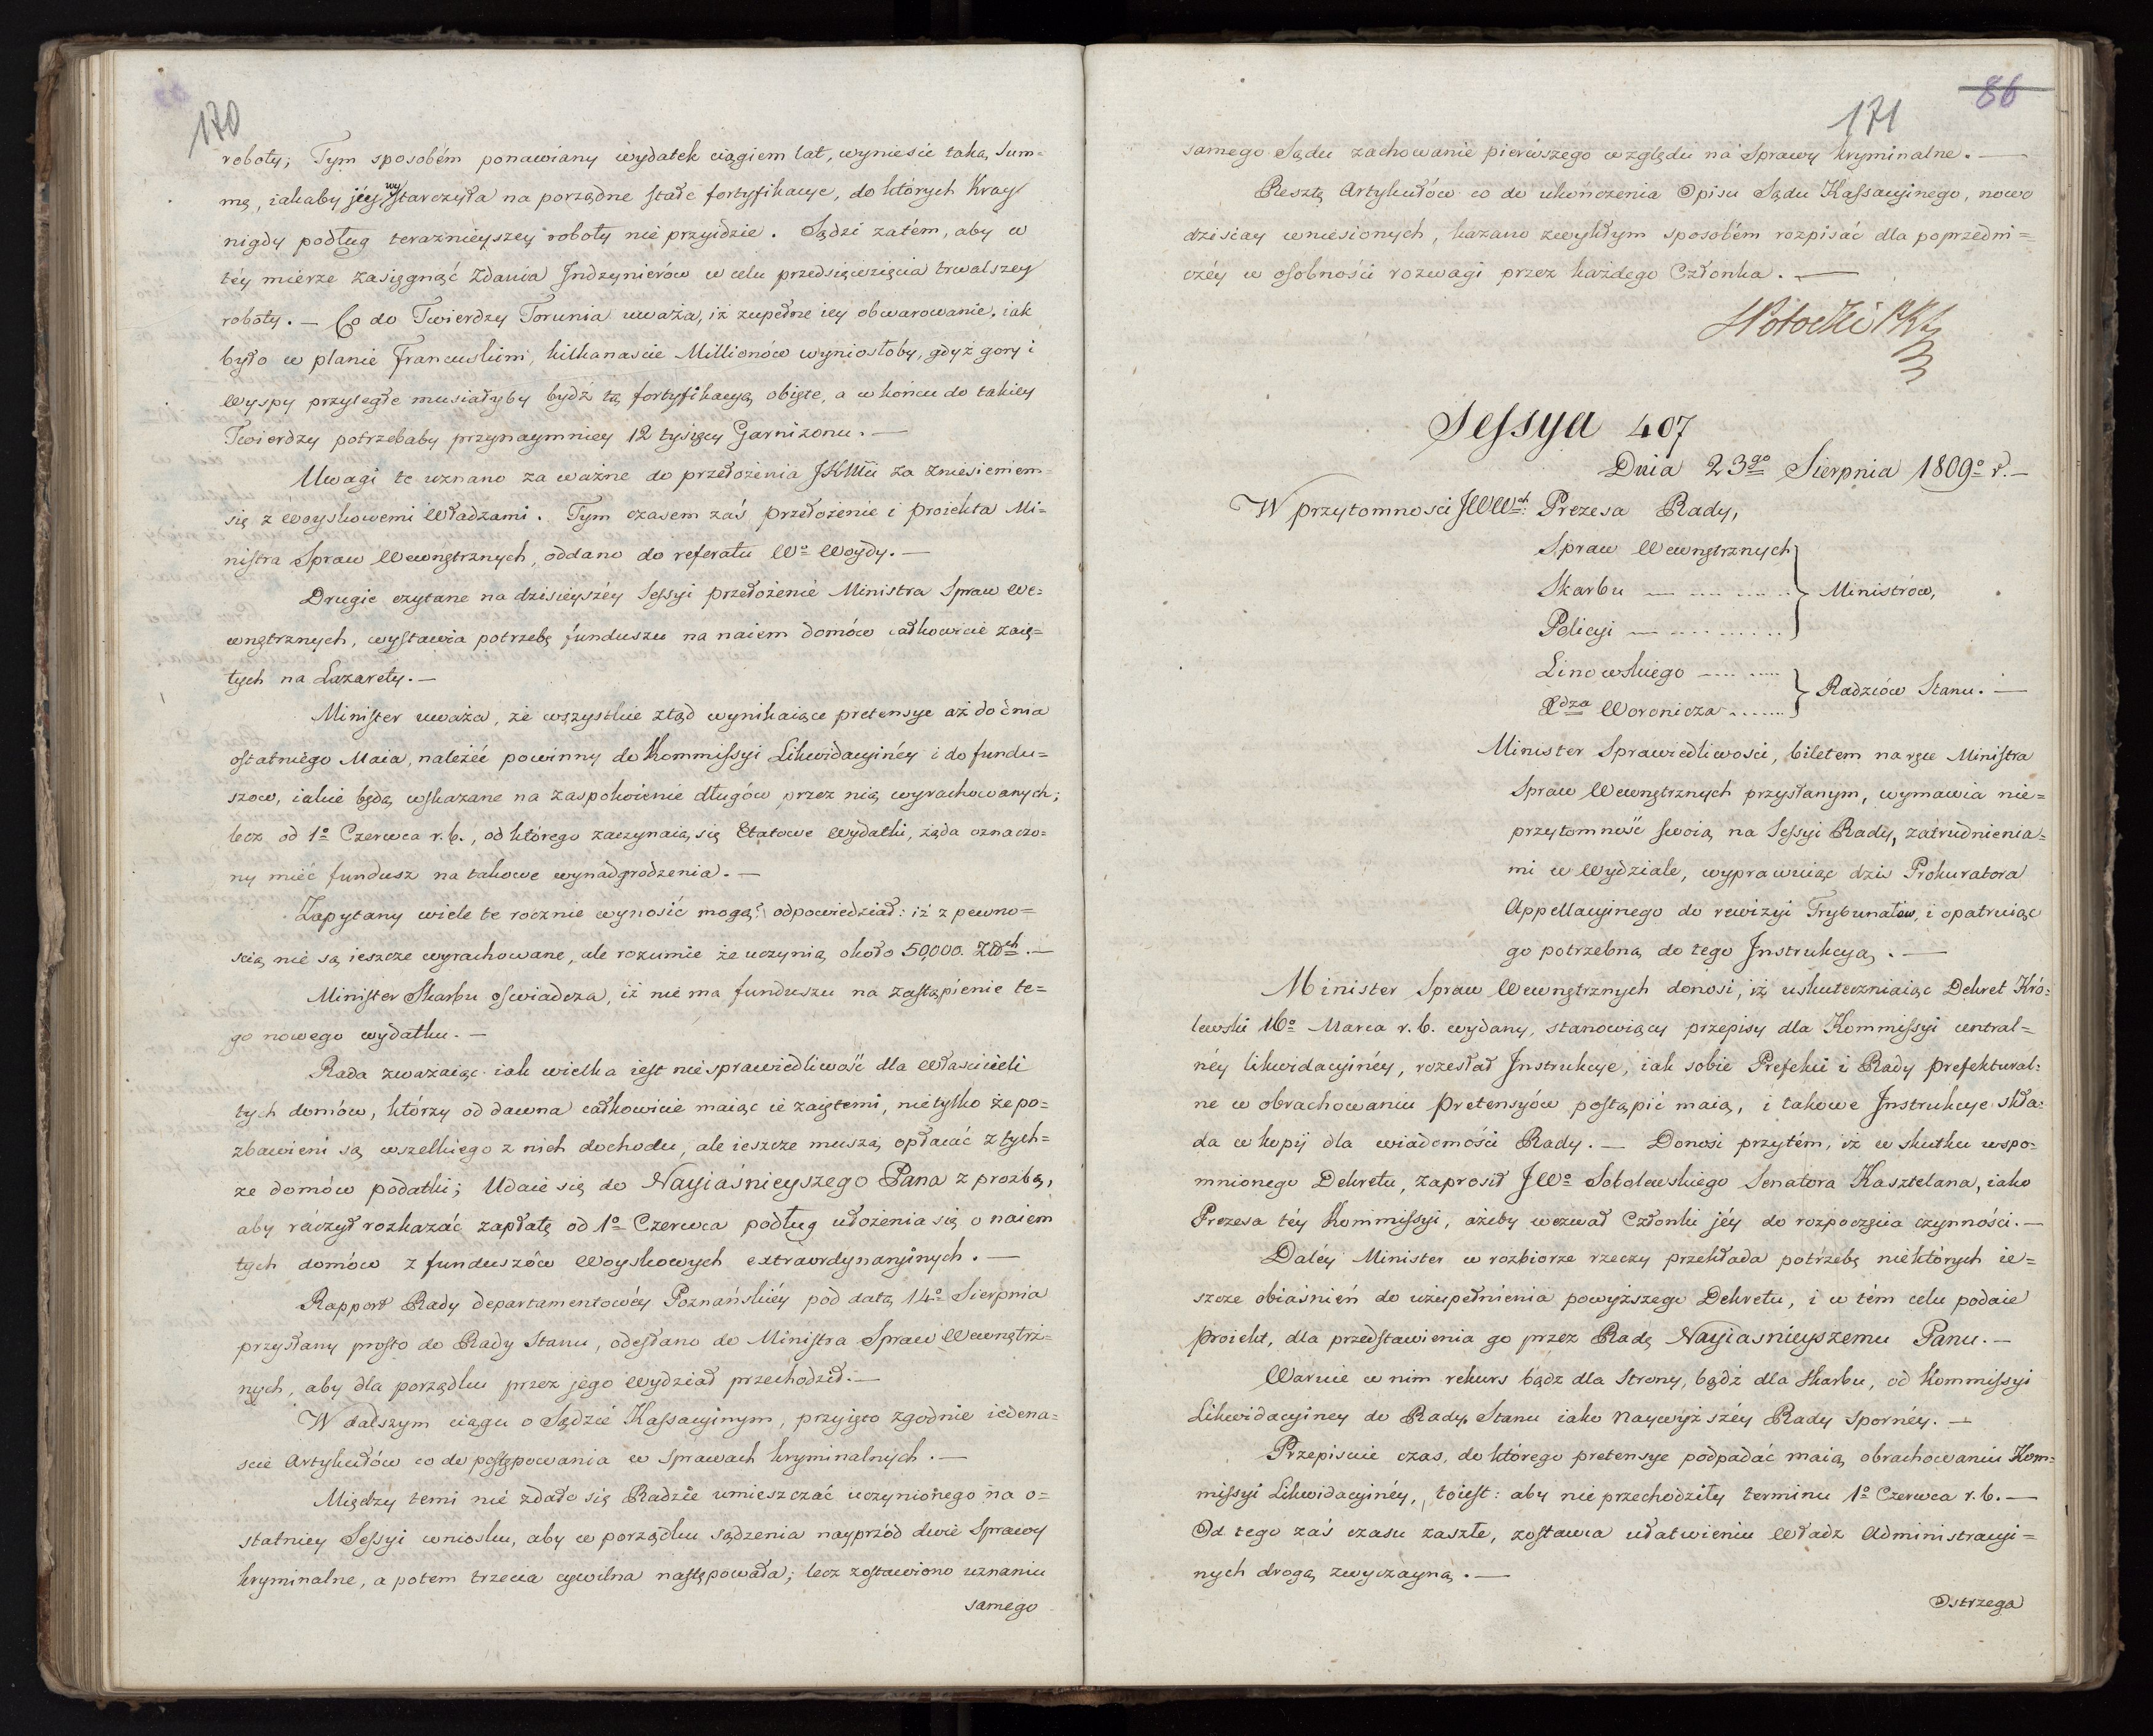 170
roboty; Tym sposobém ponawiany wydatek ciągiem lat, wyniesie taką Sum=
mę, iakaby jéy wystarczyła na porządne stałe fortyfikacye, do których Kray
nigdy podług teraznieyszey roboty nie przyidzie. Sądzi zatém, aby w
téy mierze zasięgnąć Zdania Indzynierów w celu przedsięwzięcia trwalszey
roboty. — Co do Twierdzy Torunia uważa, iż zupełne iey obwarowanie, iak
było w planie Francuskim, kilkanascie Millionów wyniosłoby, gdyż gory i
Wyspy przyległe musiałyby bydź tą fortyfikacyą obięte, a w końcu do takiey
Twierdzy potrzebaby przynaymniey 12 tysięcy Garnizonu. —
Uwagi te uznano za ważne do przełożenia JKMci za zniesieniem
się z Woyskowemi Władzami. Tym czasem zaś przełożenie i proiekta Mi=
nistra Spraw Wewnętrznych, oddano do referatu Wo Woydy. —
Drugie czytane na dzisieyszéy Sessyi przełożenie Ministra Spraw We=
wnętrznych, wystawia potrzebę funduszu na naiem domów całkowicie zaię=
tych na Lazarety. —
Minister uważa, że wszystkie ztąd wynikaiące pretensye aż do dnia
ostatniego Maia, należeć powinny do Kommissyi Likwidacyinéy i do fundu=
szow, iakie będą wskazane na zaspokoienie długów przez nią wyrachowanych;
lecz od 1o Czerwca r. b., od którego zaczynaią się Etatowe Wydatki, żąda oznaczo=
ny mieć fundusz na takowe wynadgrodzenia. —
Zapytany wiele te rocznie wynosić mogą? odpowiedział: iż z pewno=
scią nie są ieszcze wyrachowane, ale rozumie że uczynią około 50,000. Złłch. —
Minister Skarbu oswiadcza, iż nie ma funduszu na zastąpienie te=
go nowego wydatku. —
Rada zważaiąc iak wielka iest niesprawiedliwość dla Włascicieli
tych domów, którzy od dawna całkowicie maiąc ie zaiętemi, nietylko że po=
zbawieni są wszelkiego z nich dochodu, ale ieszcze muszą opłacać z tych=
że domów podatki; Udaie się do Nayiaśnieyszego Pana z prozbą,
aby raczył rozkazać zapłatę od 1o Czerwca podług ułożenia się o naiem
tych domów z funduszów Woyskowych extraordynaryinych. —
Rapport Rady departamentowéy Poznańskiéy pod datą 14o Sierpnia
przysłany prosto do Rady Stanu, odesłano do Ministra Spraw Wewnętrz=
nych, aby dla porządku przez jego Wydział przechodził. —
W dalszym ciągu o Sądzie Kassacyinym, przyięto zgodnie iedena=
scie Artykułów co do postępowania w sprawach kryminalnych. —
Między temi nie zdało się Radzie umieszczać uczynionego na o=
statniey Sessyi wniosku, aby w porządku sądzenia nayprzód dwie Sprawy
kryminalne, a potem trzecia cywilna następowała; lecz zostawiono uznaniu
samego
86
171
samego Sądu zachowanie pierwszego względu na Sprawy kryminalne. —
Resztę Artykułów co do ukończenia Opisu Sądu Kassacyinego, nowo
dzisiay wniesionych, kazano zwykłym sposobém rozpisać dla poprzedni=
czéy w osobności rozwagi przez każdego Członka. —
Potocki
Sessya 407
Dnia 23go Sierpnia 1809o r. —
W przytomnosci JWWch: Prezesa Rady,
Spraw Wewnętrznych
Skarbu
Ministrów,
Policyi
Linowskiego
Radzców Stanu. —
Xdza Woronicza
Minister Sprawiedliwosci, biletem na ręce Ministra
Spraw Wewnętrznych przysłanym, wymawia nie=
przytomność swoią na Sessyi Rady, zatrudnienia=
mi w Wydziale, wyprawuiąc dzis Prokuratora
Appellacyinego do rewizyi Trybunałów, i opatruiąc
go potrzebną do tego Instrukcyą. —
Minister Spraw Wewnętrznych donosi, iż uskuteczniaiąc Dekret Kró=
lewski 16o Marca r. b. wydany, stanowiący przepisy dla Kommissyi central=
néy likwidacyinéy, rozesłał Instrukcye, iak sobie Prefekci i Rady prefektural=
ne w obrachowaniu pretensyów postąpić maią, i takowe Instrukcye skła=
da w kopij dla wiadomości Rady. — Donosi przytém, iż w skutku wspo=
mnionego Dekretu, zaprosił JWo Sobolewskiego Senatora Kasztelana, iako
Prezesa téy Kommissyi, ażeby wezwał Członki jéy do rozpoczęcia czynności. —
Daléy Minister w rozbiorze rzeczy przekłada potrzebę niektórych ie=
szcze obiaśnień do uzupełnienia powyższego Dekretu, i w tém celu podaie
proiekt, dla przedstawienia go przez Radę Nayiasnieyszemu Panu. —
Waruie w nim rekurs bądz dla Strony, bądź dla Skarbu, od Kommissyi
Likwidacyiney do Rady Stanu iako Naywyższéy Rady sporney. —
Przepisuie czas, do którego pretensye podpadać maią obrachowaniu Kom=
missyi Likwidacyinéy, toiest: aby nie przechodziły terminu 1o Czerwca r. b. —
Od tego zaś czasu zaszłe, zostawia ułatwieniu Władz Administracyi=
nych drogą zwyczayną. —
Ostrzega